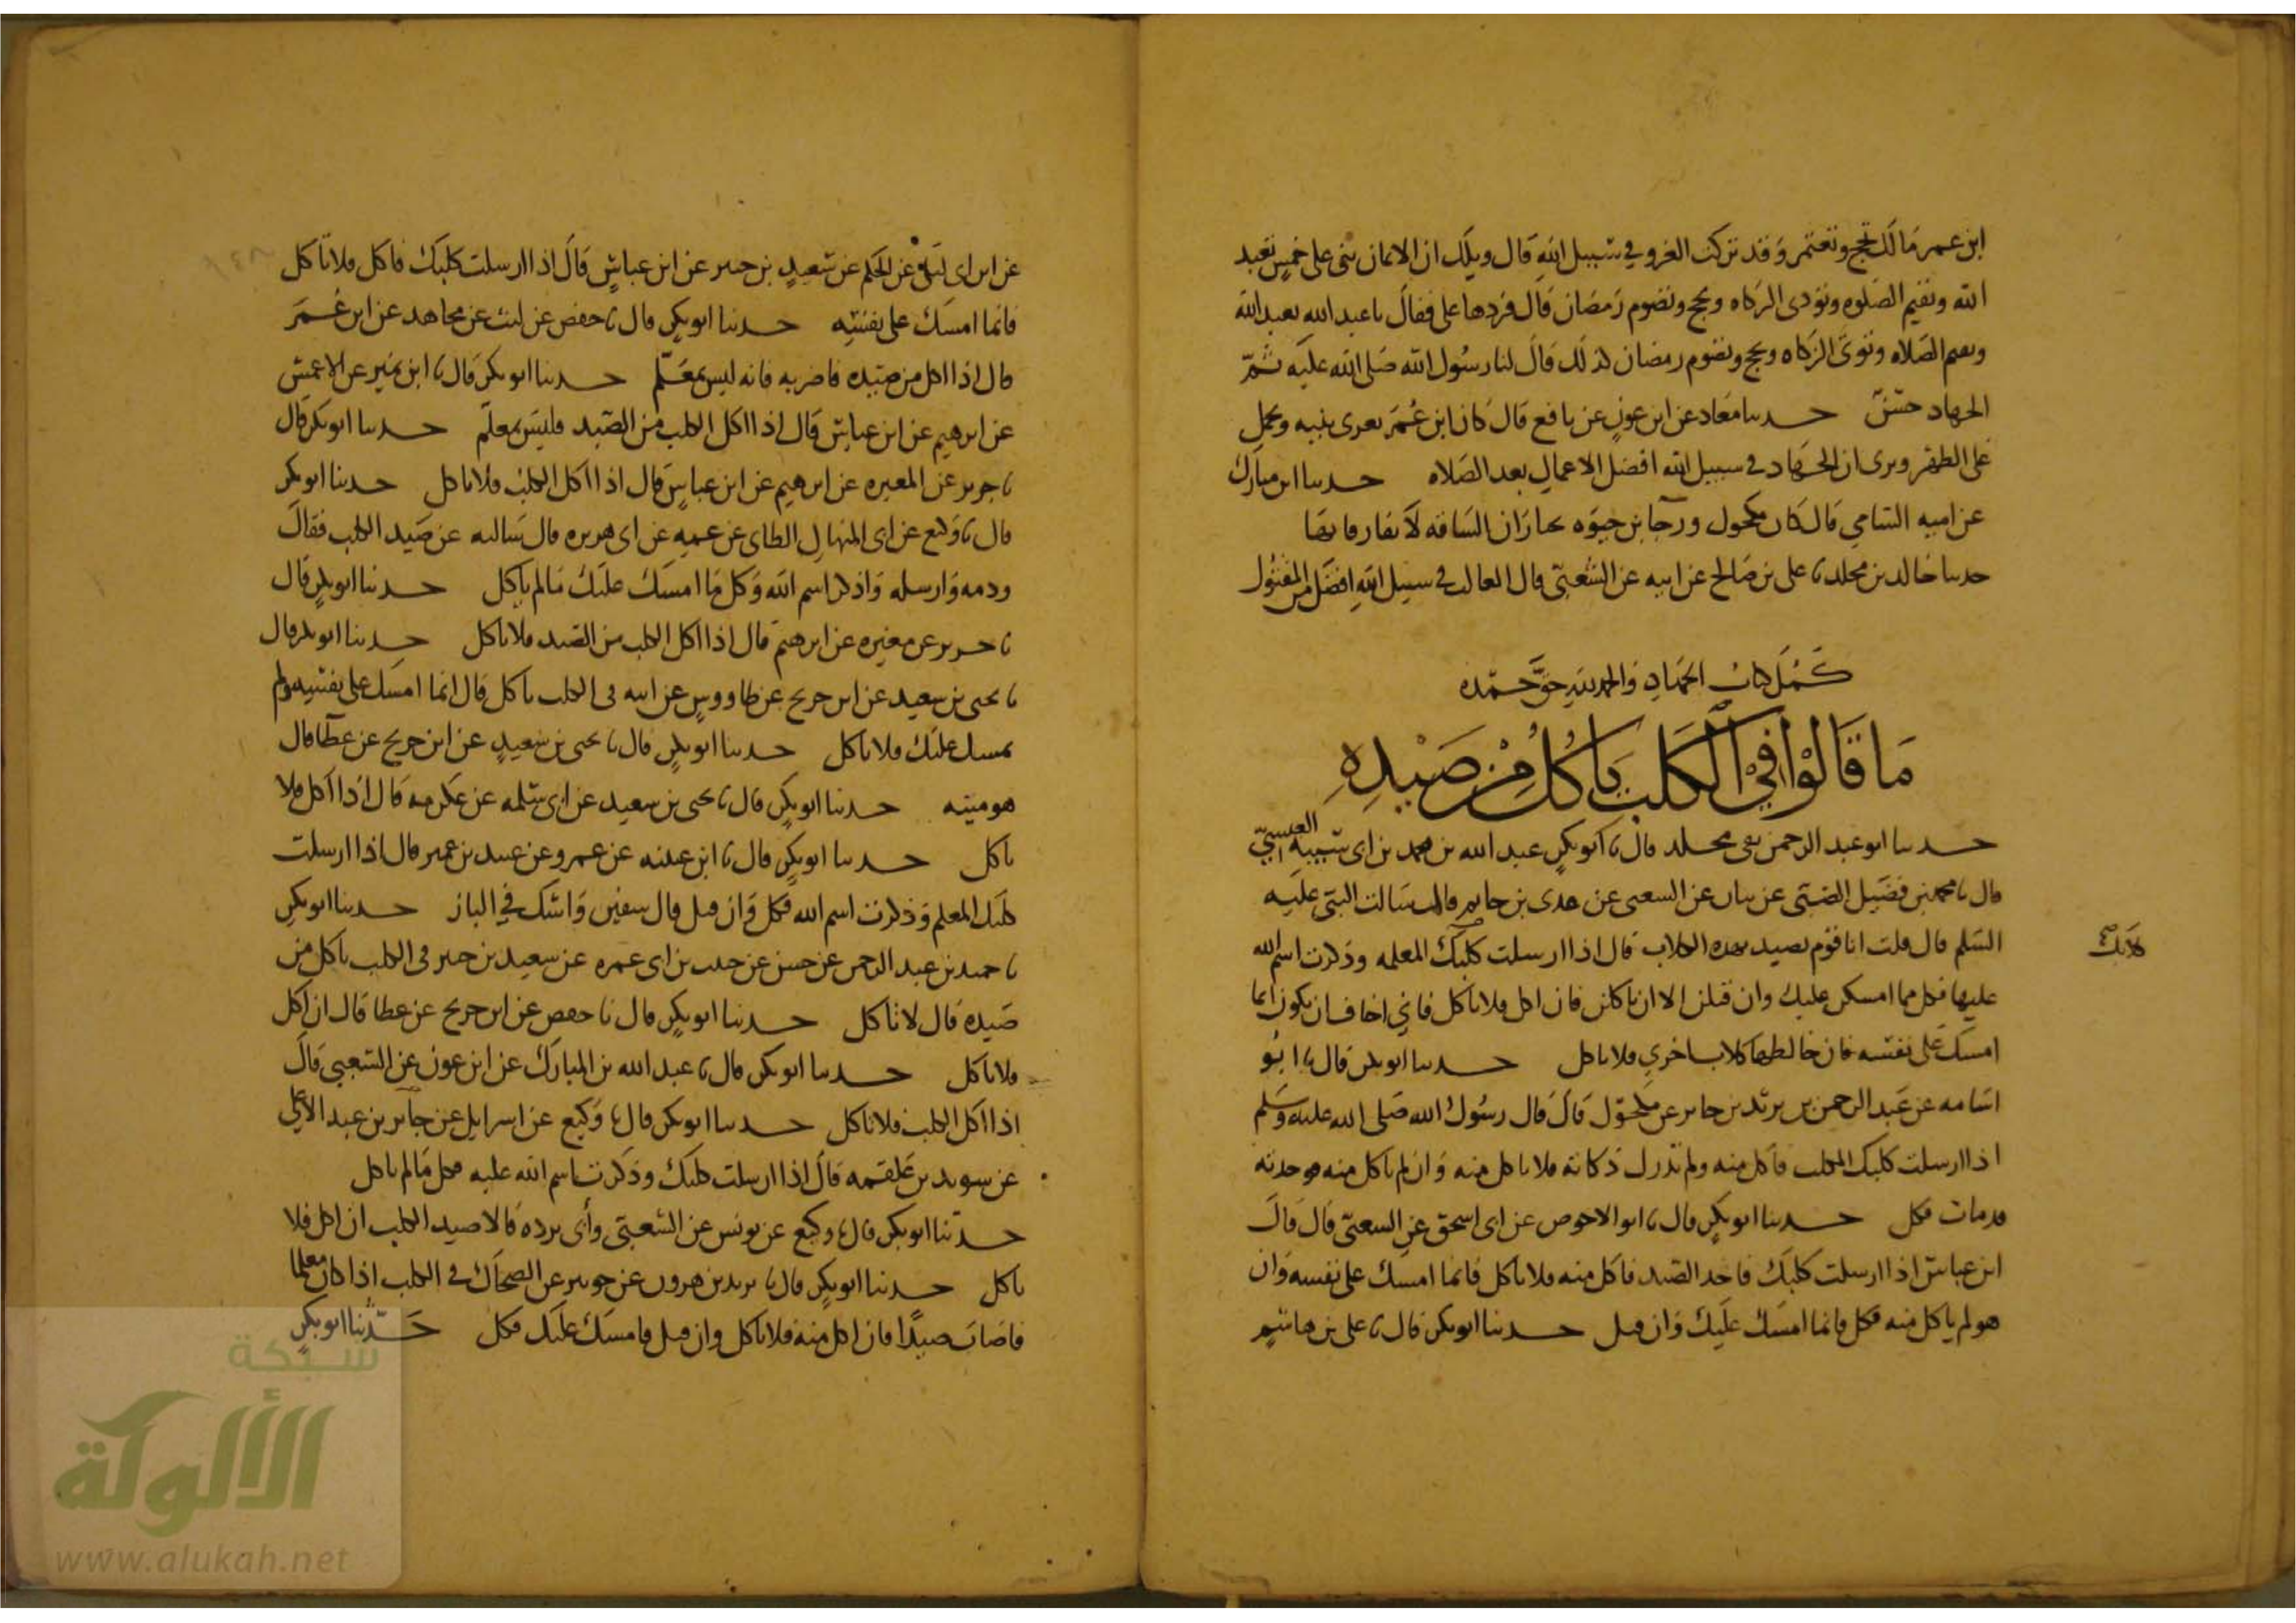 ابن عمر مالك تحج وتعتمر وقد تركت الغزو في سبيل الله قال ويلك ان الايمان بنى على خمس تعبد
الله وتقيم الصلوه وتؤدى الزكاه وتحج وتصوم رمضان قال فردها على فقال يا عبد الله تعبد الله
وتقيم الصلاه وتوتى الزكاه وتحج وتصوم رمضان كذلك قال لنا رسول الله صلى الله عليه ثم
الجهاد حسن حدثنا معاذ عن ابن عون عن نافع قال كان ابن عمر يغزى بنيه ويحمل
على الظهر ويرى ان الجهاد في سبيل الله افضل الاعمال بعد الصلاه حدثنا ابن مبارك
عن اميه الشامي قال كان مكحول ورجا بن حيوه يختاران الساقه لا يفارقانها
حدثنا خالد بن مخلد نا على بن صالح عن ابيه عن الشعبي قال الغالب في سبيل الله افضل من المقتول
كمل كتاب الجهاد والحمد لله حق حمده
ما قالوا في الكلب ياكل من صيده
حدثنا ابو عبد الرحمن بقى بن مخلد قال نا ابو بكر عبد الله بن محمد بن ابى شيبه العبسي
قال نا محمد بن فضيل الضبى عن بيان عن الشعبى عن عدى بن حاتم قال سالت النبي عليه
السلم قال قلت انا قوم نصيد بهذه الكلاب قال اذا ارسلت كلبك المعلمه وذكرت اسم الله
كلابك
عليها فكل مما امسكن عليك وان قتلن الا ان ياكلن فان اكل فلا تاكل فاني اخاف ان يكون انما
امسك على نفسه فان خالطها كلاب اخرى فلا تاكل حدثنا ابو بكر قال نا ابو
اسامه عن عبد الرحمن بن يزيد بن جابر عن مكحول قال قال رسول الله صلى الله عليه وسلم
اذا ارسلت كلبك المكلب فاكل منه ولم تدرك ذكاته فلا تاكل منه وان لم ياكل منه فوجدته
قد مات فكل حدثنا ابو بكر قال نا ابو الاحوص عن ابى اسحق عن الشعبي قال قال
ابن عباس اذا ارسلت كلبك فاخذ الصيد فاكل منه فلا تاكل فانما امسك على نفسه وان
هو لم ياكل منه فكل فانما امسك عليك وان قتل حدثنا ابو بكر قال نا على بن هاشم
عن ابن ابى ليلى عن الحكم عن سعيد بن جبير عن ابن عباس قال اذا ارسلت كلبك فاكل فلا تاكل
فانما امسك على نفسه حدثنا ابو بكر قال نا حفص عن ليث عن مجاهد عن ابن عمر
قال اذا اكل من صيده فاضربه فانه ليس بمعلم حدثنا ابو بكر قال نا ابن نمير عن الاعمش
عن ابرهيم عن ابن عباس قال اذا اكل الكلب من الصيد فليس بمعلم حدثنا ابو بكر قال
نا جرير عن المغيره عن ابرهيم عن ابن عباس قال اذا اكل الكلب فلا تاكل حدثنا ابو بكر
قال نا وكيع عن ابى المنهال الطاى عن عمه عن ابى هريره قال سالته عن صيد الكلب فقال
ودمه وارسله واذكر اسم الله وكل ما امسك عليك مالم ياكل حدثنا ابو بكر قال
نا جرير عن مغيره عن ابرهيم قال اذا اكل الكلب من الصيد فلا تاكل حدثنا ابو بكر قال
نا يحيى بن سعيد عن ابن جريج عن طاووس عن ابيه فى الكلب ياكل قال انما امسك على نفسه ولم
يمسك عليك فلا تاكل حدثنا ابو بكر قال نا يحيى بن سعيد عن ابن جريج عن عطا قال
هو ميته حدثنا ابو بكر قال نا يحيى بن سعيد عن ابى سلمه عن عكرمه قال اذا اكل فلا
تاكل حدثنا ابو بكر قال نا ابن عيينه عن عمرو عن عبيد بن عمير قال اذا ارسلت
كلبك المعلم وذكرت اسم الله فكل وان قتل قال سفين واشك في الباز حدثنا ابو بكر
نا حميد بن عبد الرحمن عن حسن عن حبيب بن ابى عمره عن سعيد بن جبير فى الكلب ياكل من
صيده قال لا تاكل حدثنا ابو بكر قال نا حفص عن ابن جريج عن عطا قال ان اكل
فلا تاكل حدثنا ابو بكر قال نا عبد الله بن المبارك عن ابن عون عن الشعبي قال
اذا اكل الكلب فلا تاكل حدثنا ابو بكر قال نا وكيع عن اسرايل عن جابر بن عبد الاعلى
عن سويد بن علقمه قال اذا ارسلت كلبك وذكرت اسم الله عليه فكل مالم ياكل
حدثنا ابو بكر قال نا وكيع عن يونس عن الشعبي وأبى برده قالا صيد الكلب ان اكل فلا
تاكل حدثنا ابو بكر قال نا يزيد بن هرون عن جويبر عن الضحاك فى الكلب اذا كان معلما
فاصاب صيدا فان اكل منه فلا تاكل وان قتل فامسك عليك فكل حدثنا ابو بكر
شبكة
الألوكة
www.alukah.net